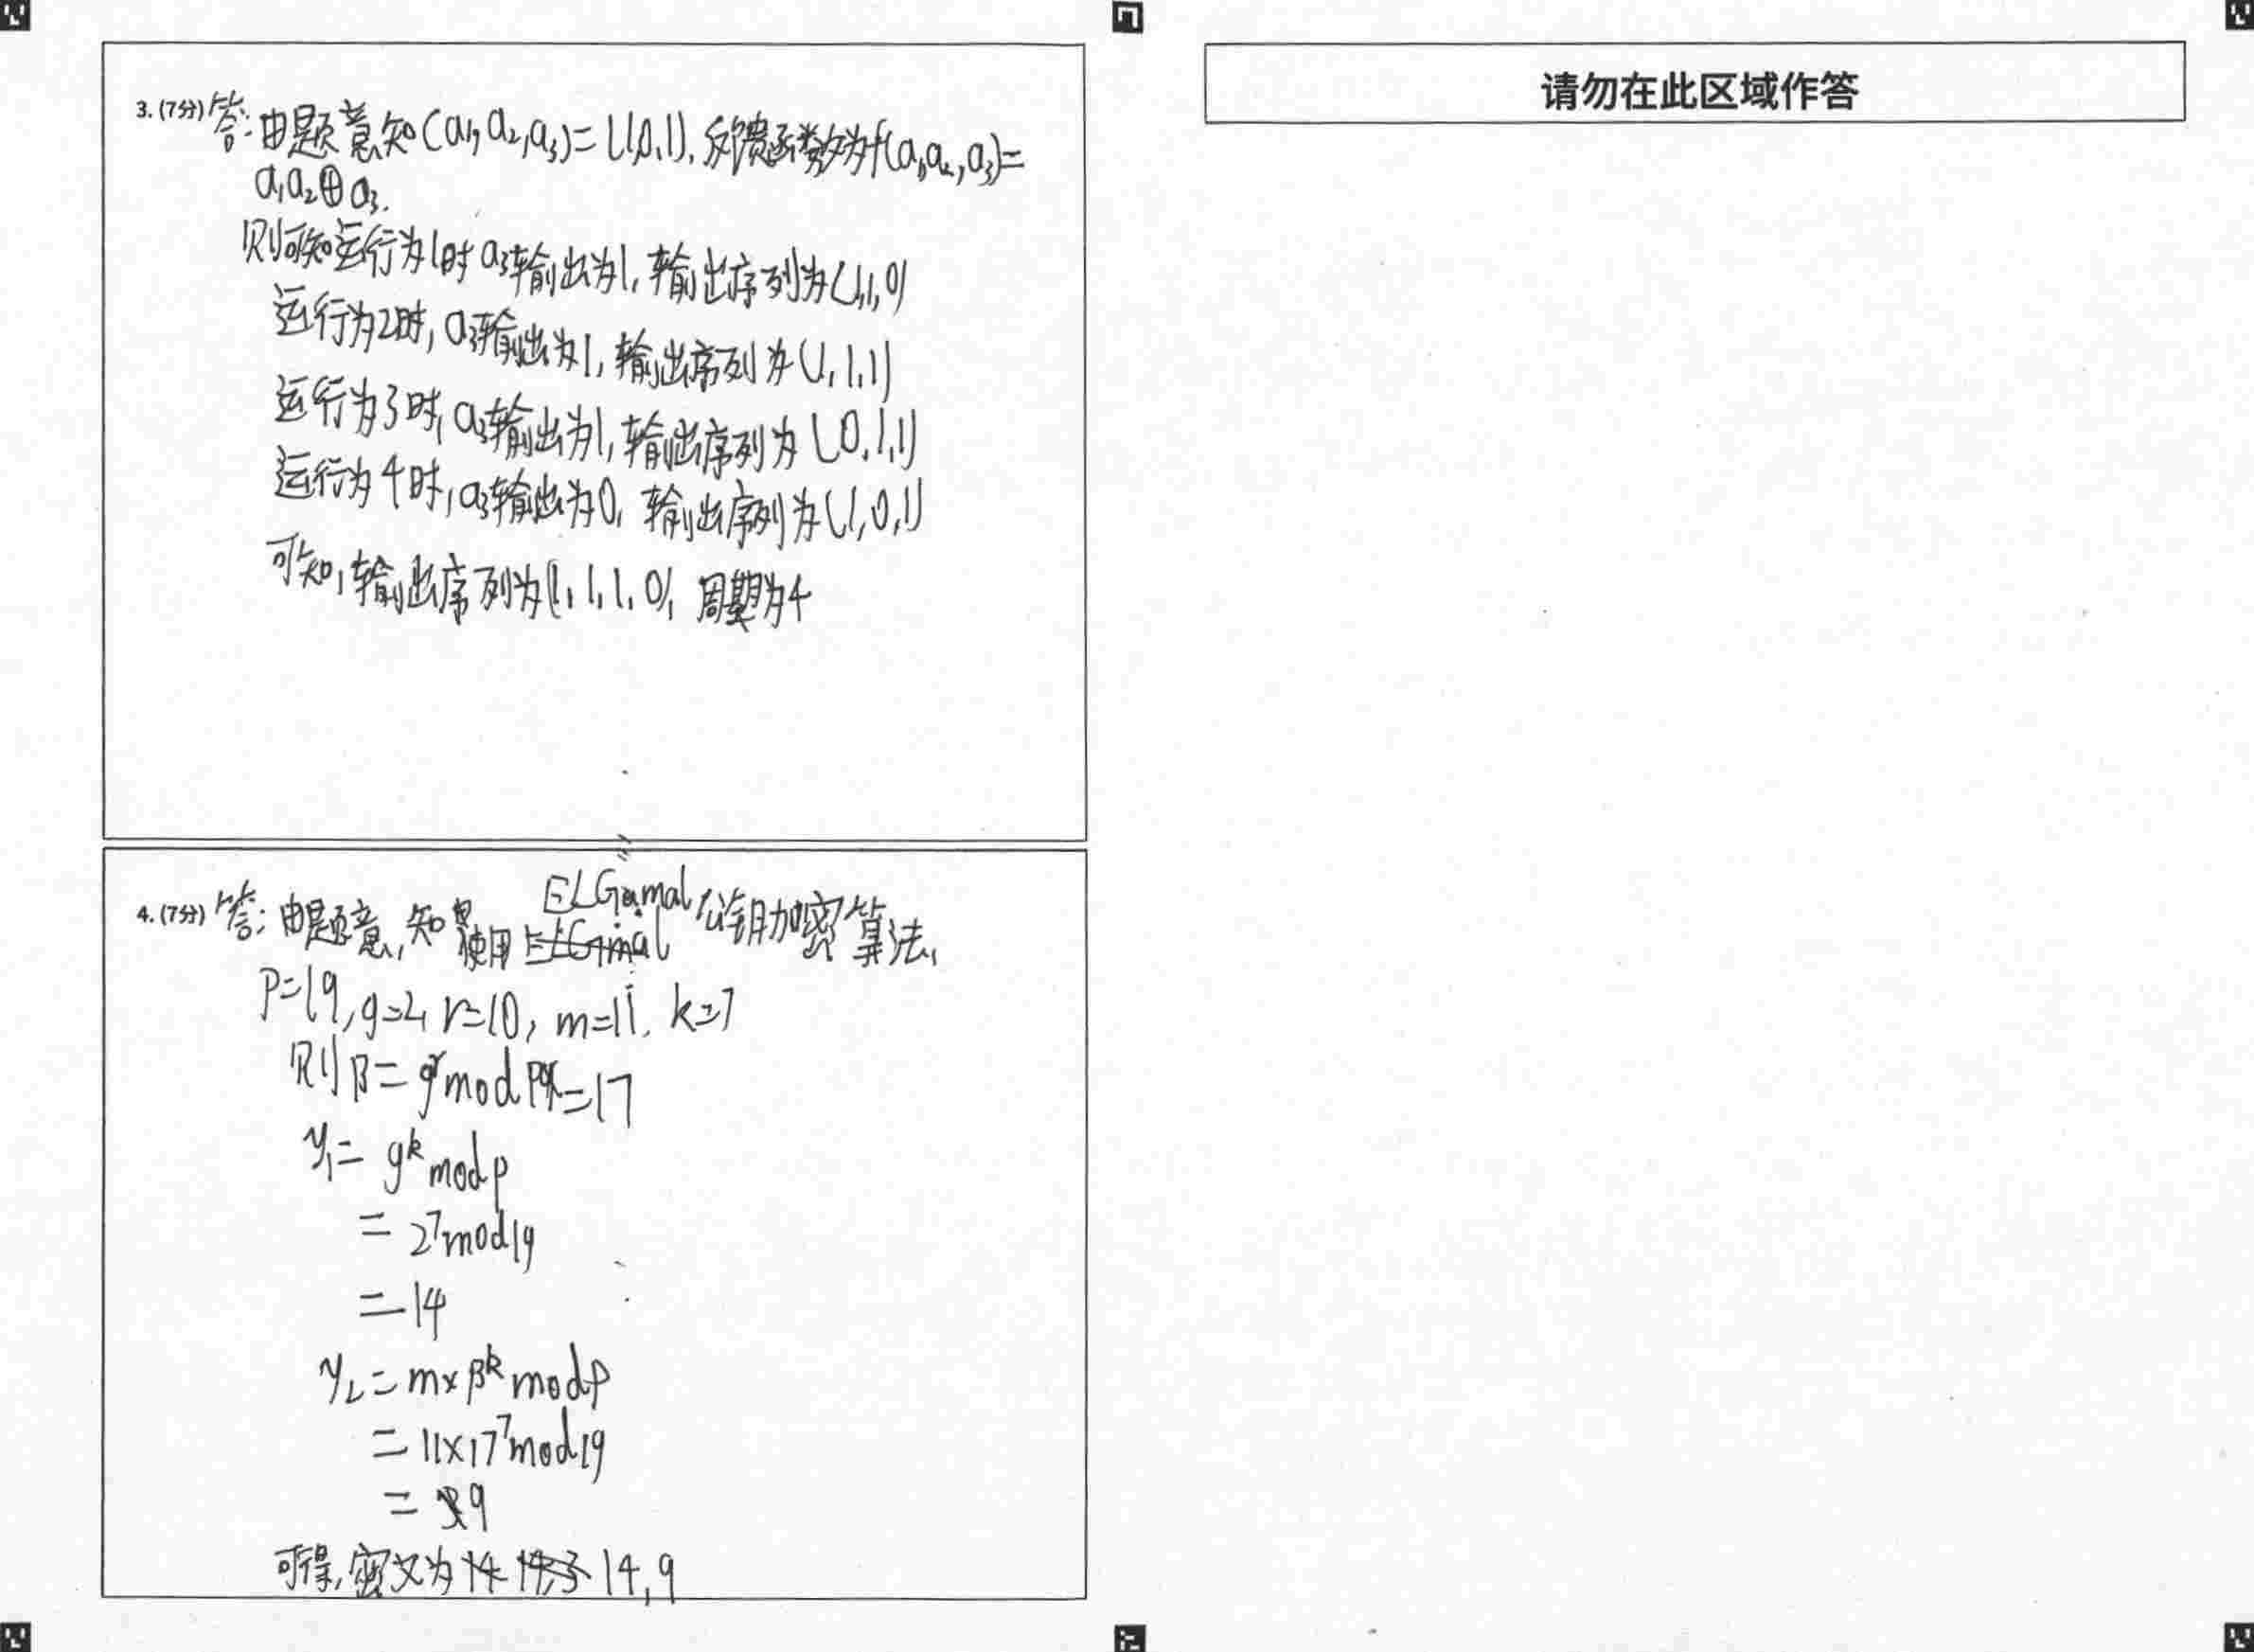 请勿在此区域作答
3. (7分) 答:由题意知(a₁,a₂,a₃)=(1,0,1),反馈函数为f(a₁,a₂,a₃)=
a₁a₂⊕a₃.
则可知运行为1时a₃输出为1,输出序列为(1,1,0)
运行为2时,a₃输出为1,输出序列为(1,1,1)
运行为3时,a₃输出为1,输出序列为(0,1,1)
运行为4时,a₃输出为0,输出序列为(1,0,1)
可知,输出序列为(1,1,1,0),周期为4
4. (7分) 答:由题意,知使用ELGamal公钥加密算法,
P=19,g=2,r=10,m=11,k=7
则β=gʳmodp=17
y₁=gᵏmodp
=2⁷mod19
=14
y₂=m×βᵏmodp
=11×17⁷mod19
=9
可得,密文为14,9